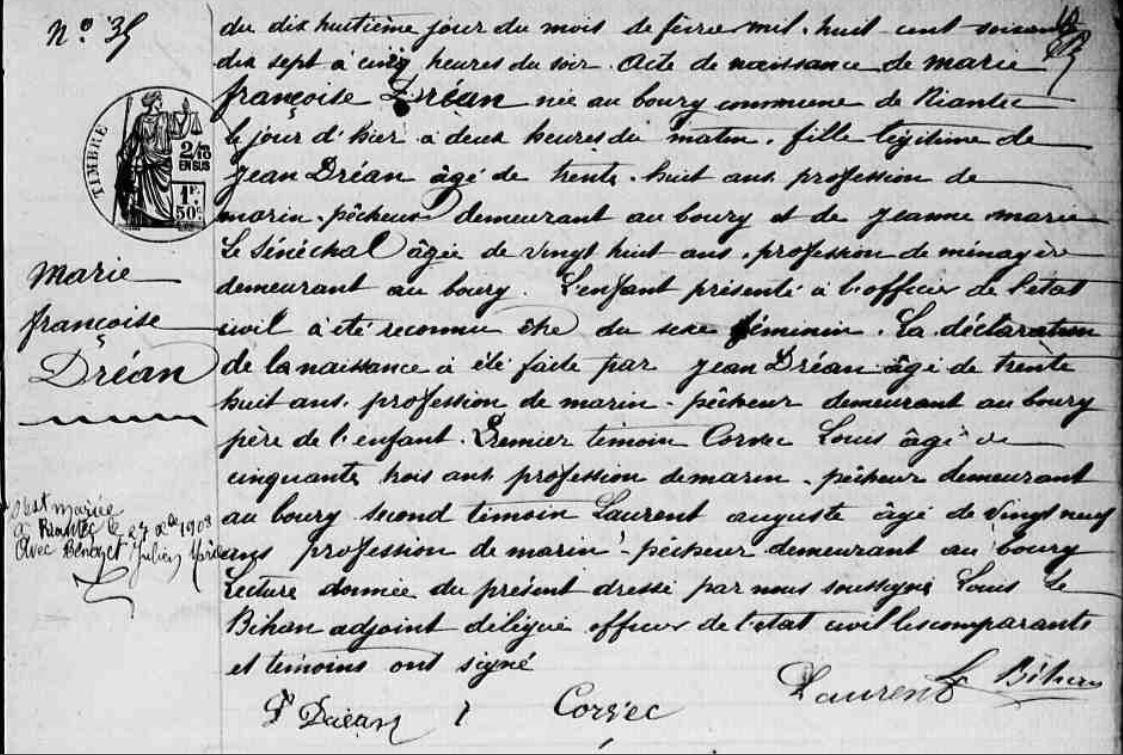 N.° 35
TIMBRE
2/10
EN SUS
1F.
50c.
Marie
françoise
Dréan
S'est mariée
à Riantec le 27 Xbre 1908
avec Bénozet Julien Marie
du dix huitième jour du mois de fevrier mil huit cent soixante
dix sept à cinq heures du soir. Acte de naissance de marie
françoise Dréan née au bourg commune de Riantec
le jour d'hier à deux heures du matin, fille légitime de
Jean Dréan âgé de trente-huit ans profession de
marin-pêcheur demeurant au bourg et de Jeanne marie
Le Sénéchal âgée de vingt huit ans, profession de ménagère
demeurant au bourg. L'enfant présenté à l'officier de l'état
civil à été reconnu être du sexe féminin. La déclaration
de la naissance à été faite par Jean Dréan âgé de trente
huit ans, profession de marin-pêcheur demeurant au bourg
père de l'enfant. Premier témoin Corvec Louis âgé de
cinquante trois ans profession de marin-pêcheur demeurant
au bourg second témoin Laurent auguste âgé de vingt neuf
ans profession de marin-pêcheur demeurant au bourg
Lecture donnée du présent dressé par nous soussigné Louis Le
Bihan adjoint délégué officier de l'état civil les comparants
et témoins ont signé
Laurent Le Bihan
Dréan Corvec